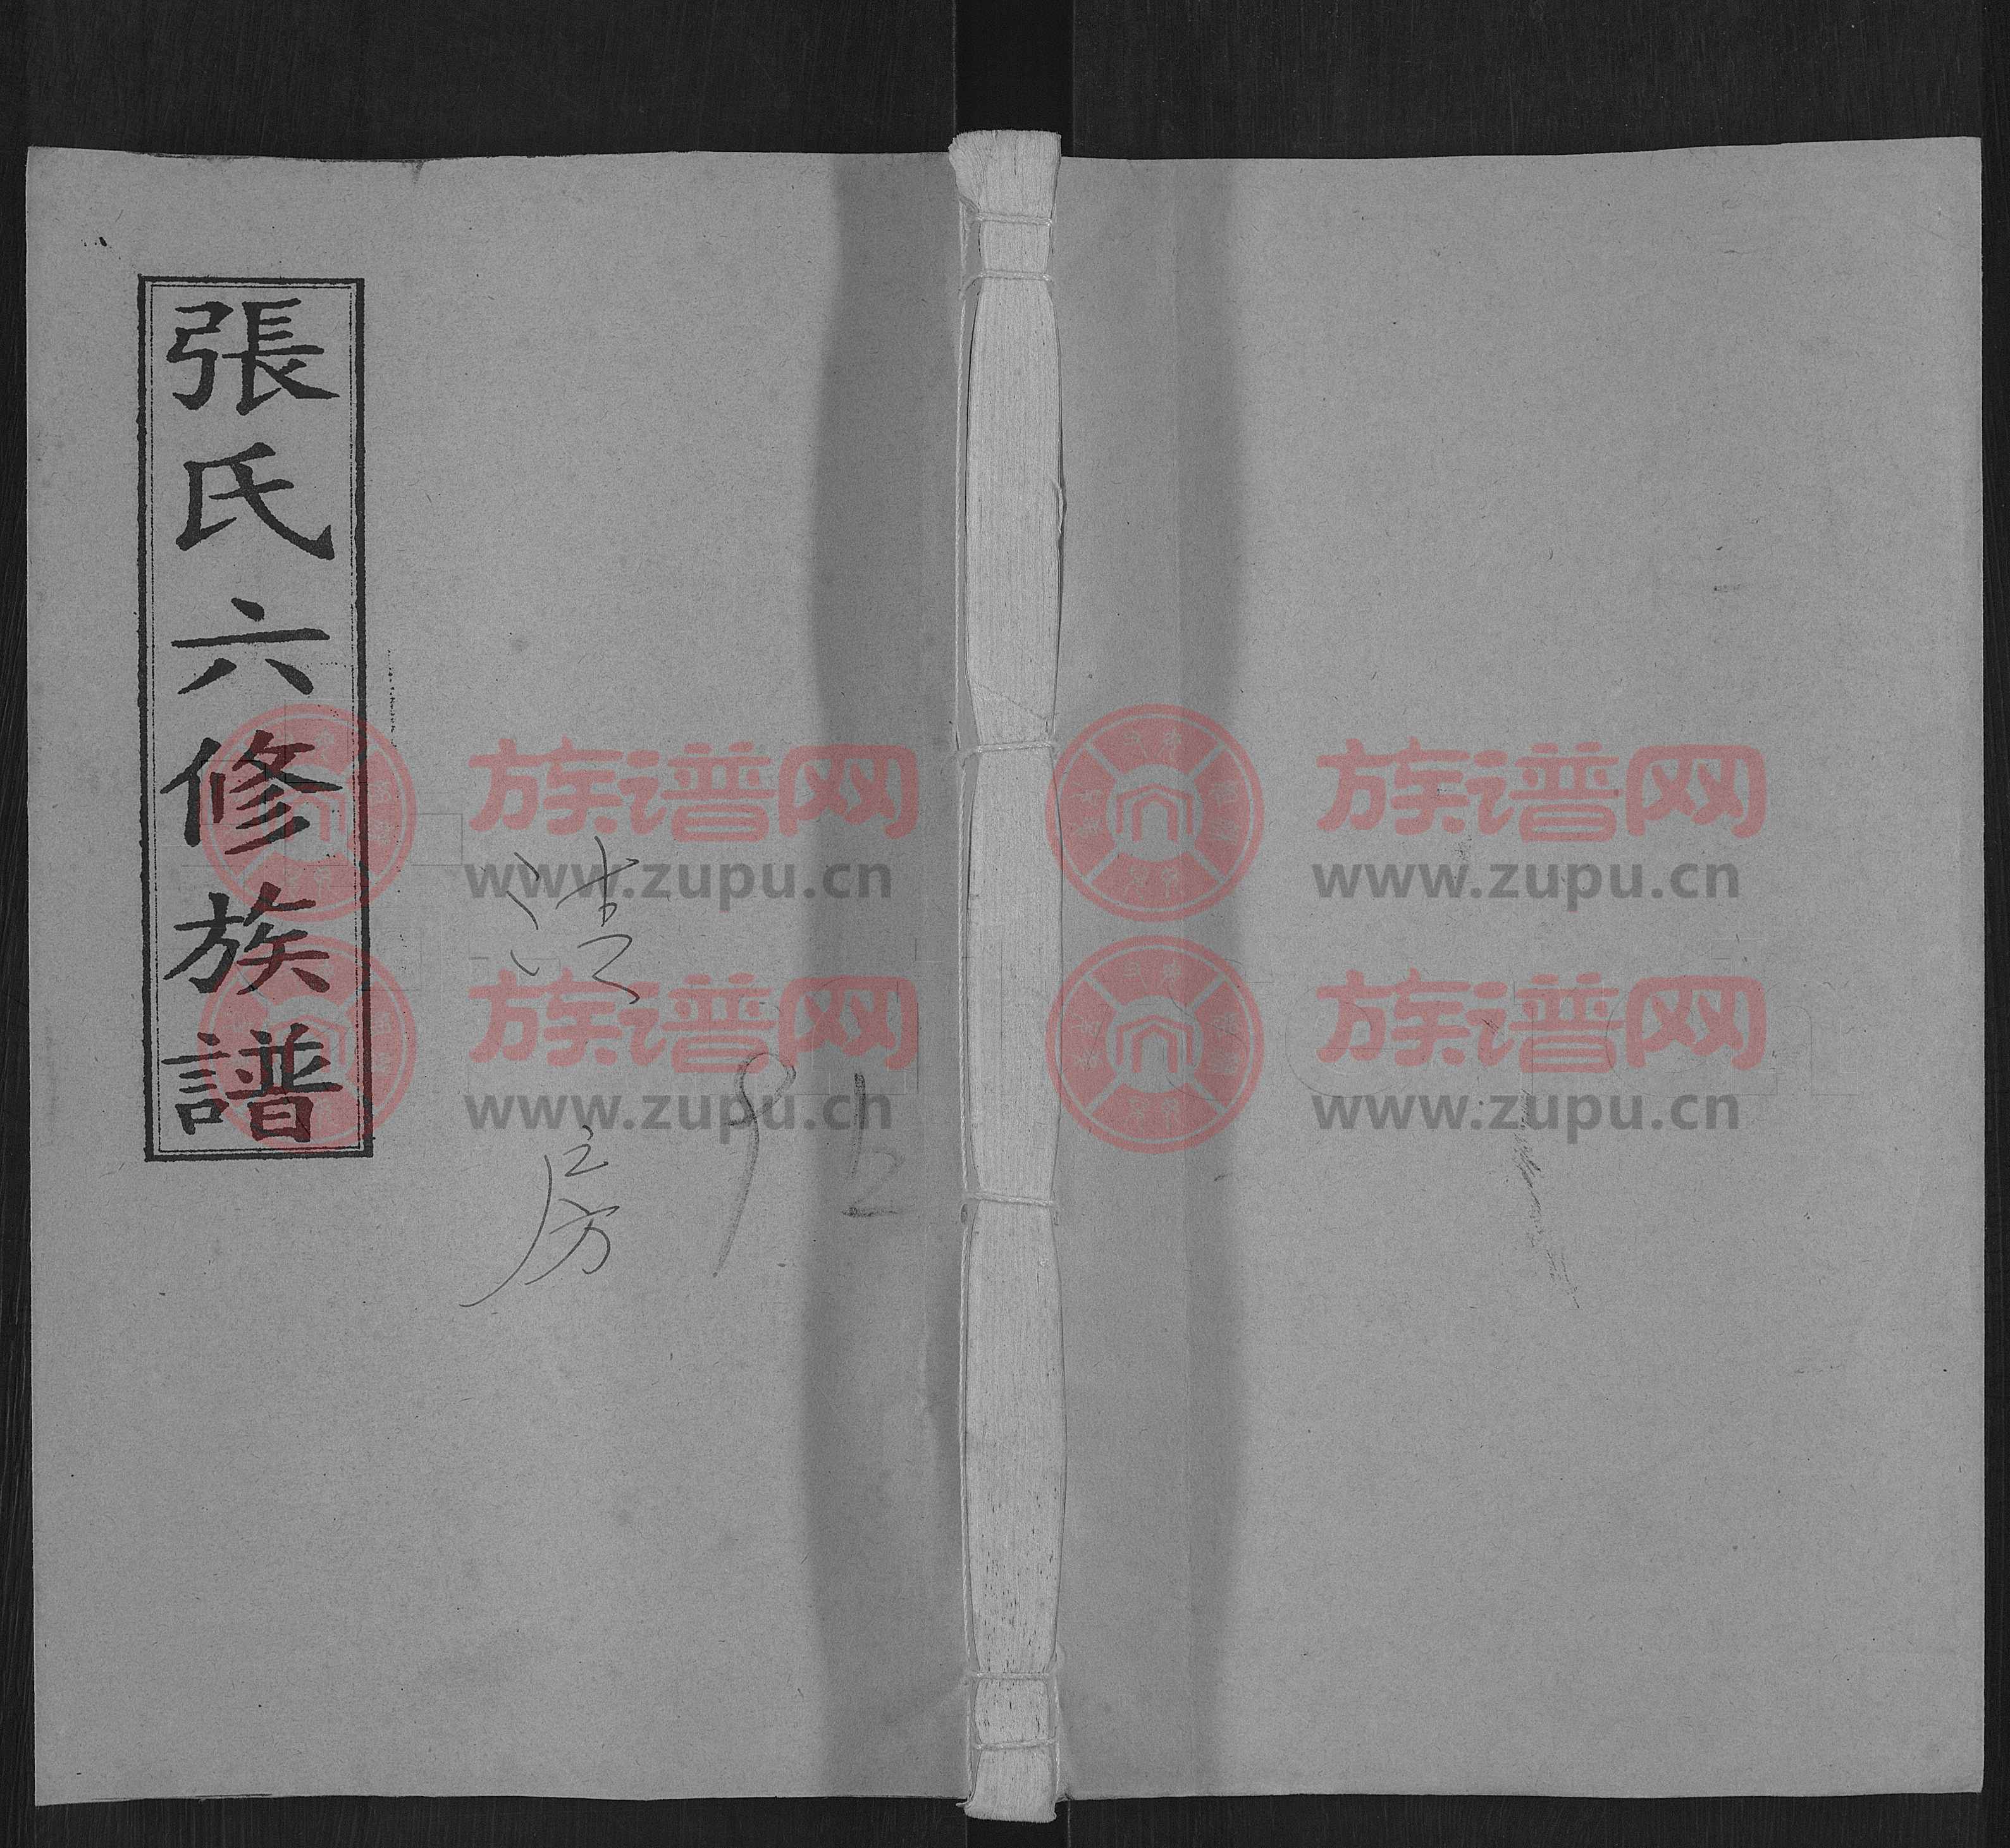 張氏六修族譜
房
族谱网
www.zupu.cn
族谱网
www.zupu.cn
族谱网
www.zupu.cn
族谱网
www.zupu.cn